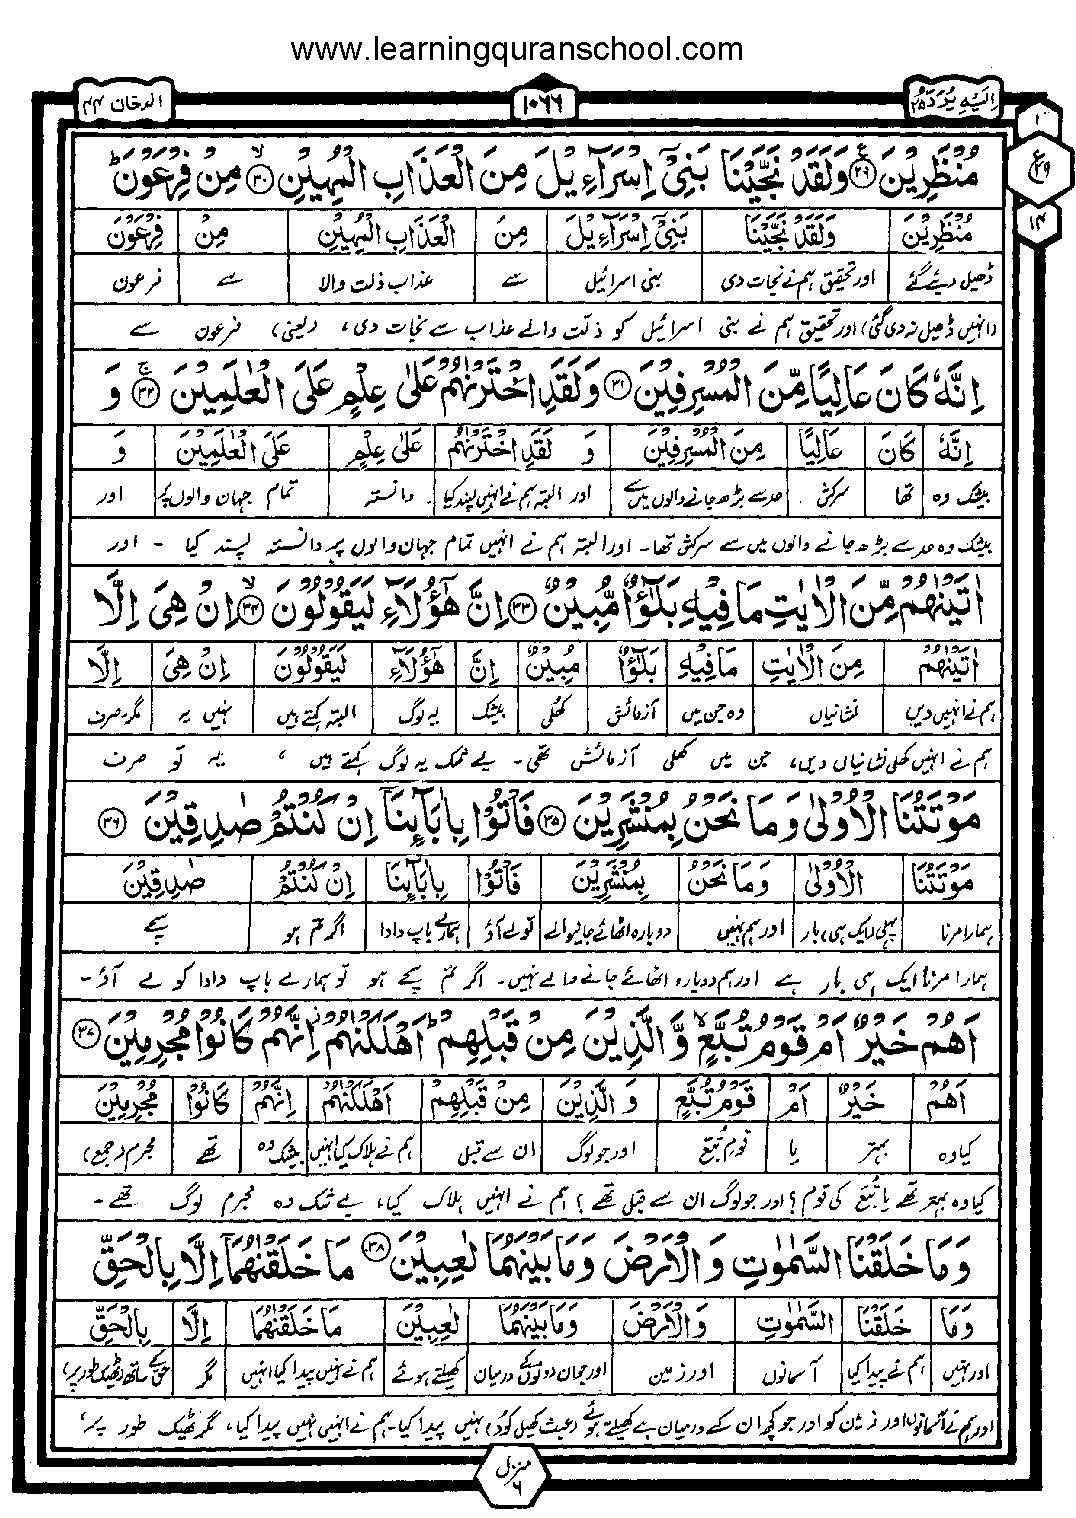 www.learningquranschool.com
الدخان ۴۴
۱۰۶۶
اِلَیۡهِ یُرَدُّ ۲۵
مُنۡظَرِیۡنَ ﴿۲۹﴾ وَلَقَدۡ نَجَّیۡنَا بَنِیۡۤ اِسۡرَآءِیۡلَ مِنَ الۡعَذَابِ الۡمُهِیۡنِ ﴿۳۰﴾ مِنۡ فِرۡعَوۡنَ ؕ
مُنۡظَرِیۡنَ وَلَقَدۡ نَجَّیۡنَا بَنِیۡۤ اِسۡرَآءِیۡلَ مِنَ الۡعَذَابِ الۡمُهِیۡنِ مِنۡ فِرۡعَوۡنَ
ڈھیل دیئے گئے اور تحقیق ہم نے نجات دی بنی اسرائیل سے عذاب ذلت والا سے فرعون
(انہیں ڈھیل نہ دی گئی) اور تحقیق ہم نے بنی اسرائیل کو ذلت والے عذاب سے نجات دی، (یعنی) فرعون سے
اِنَّهٗ کَانَ عَالِیًا مِّنَ الۡمُسۡرِفِیۡنَ ﴿۳۱﴾ وَلَقَدِ اخۡتَرۡنٰهُمۡ عَلٰی عِلۡمٍ عَلَی الۡعٰلَمِیۡنَ ﴿۳۲﴾ وَ
اِنَّهٗ کَانَ عَالِیًا مِنَ الۡمُسۡرِفِیۡنَ وَ لَقَدِ اخۡتَرۡنٰهُمۡ عَلٰی عِلۡمٍ عَلَی الۡعٰلَمِیۡنَ وَ
بیشک وہ تھا سرکش حد سے بڑھ جانے والوں میں سے اور البتہ ہم نے انہیں پسند کیا دانستہ تمام جہان والوں پر اور
بیشک وہ حد سے بڑھ جانے والوں میں سے سرکش تھا۔ اور البتہ ہم نے انہیں تمام جہان والوں پر دانستہ پسند کیا ۔ اور
اٰتَیۡنٰهُمۡ مِّنَ الۡاٰیٰتِ مَا فِیۡهِ بَلٰٓؤٌا مُّبِیۡنٌ ﴿۳۳﴾ اِنَّ هٰۤؤُلَآءِ لَیَقُوۡلُوۡنَ ﴿۳۴﴾ اِنۡ هِیَ اِلَّا
اٰتَیۡنٰهُمۡ مِنَ الۡاٰیٰتِ مَا فِیۡهِ بَلٰٓؤٌا مُبِیۡنٌ اِنَّ هٰۤؤُلَآءِ لَیَقُوۡلُوۡنَ اِنۡ هِیَ اِلَّا
ہم نے انہیں دیں نشانیاں وہ جن میں آزمائش کھلی بیشک یہ لوگ البتہ کہتے ہیں نہیں یہ مگر۔صرف
ہم نے انہیں کھلی نشانیاں دیں، جن میں کھلی آزمائش تھی۔ بے شک یہ لوگ کہتے ہیں ، یہ تو صرف
مَوۡتَتُنَا الۡاُوۡلٰی وَمَا نَحۡنُ بِمُنۡشَرِیۡنَ ﴿۳۵﴾ فَاۡتُوۡا بِاٰبَآئِنَاۤ اِنۡ کُنۡتُمۡ صٰدِقِیۡنَ ﴿۳۶﴾
مَوۡتَتُنَا الۡاُوۡلٰی وَمَا نَحۡنُ بِمُنۡشَرِیۡنَ فَاۡتُوۡا بِاٰبَآئِنَاۤ اِنۡ کُنۡتُمۡ صٰدِقِیۡنَ
ہمارا مرنا پہلی (ایک ہی) بار اور ہم نہیں دوبارہ اٹھائے جانیوالے تو لے آؤ ہمارے باپ دادا اگر تم ہو سچے
ہمارا مرنا ایک ہی بار ہے اور ہم دوبارہ اٹھائے جانے والے نہیں۔ اگر تم سچے ہو تو ہمارے باپ دادا کو لے آؤ۔
اَهُمۡ خَیۡرٌ اَمۡ قَوۡمُ تُبَّعٍ ۙ وَّالَّذِیۡنَ مِنۡ قَبۡلِهِمۡ ؕ اَهۡلَکۡنٰهُمۡ ۫ اِنَّهُمۡ کَانُوۡا مُجۡرِمِیۡنَ ﴿۳۷﴾
اَهُمۡ خَیۡرٌ اَمۡ قَوۡمُ تُبَّعٍ وَ الَّذِیۡنَ مِنۡ قَبۡلِهِمۡ اَهۡلَکۡنٰهُمۡ اِنَّهُمۡ کَانُوۡا مُجۡرِمِیۡنَ
کیا وہ بہتر یا قوم تُبّع اور جو لوگ ان سے قبل ہم نے ہلاک کیا انہیں بیشک وہ تھے مجرم (جمع)
کیا وہ بہتر تھے یا تُبّع کی قوم؟ اور جو لوگ ان سے قبل تھے؟ ہم نے انہیں ہلاک کیا، بے شک وہ مجرم لوگ تھے۔
وَمَا خَلَقۡنَا السَّمٰوٰتِ وَالۡاَرۡضَ وَمَا بَیۡنَهُمَا لٰعِبِیۡنَ ﴿۳۸﴾ مَا خَلَقۡنٰهُمَاۤ اِلَّا بِالۡحَقِّ
وَمَا خَلَقۡنَا السَّمٰوٰتِ وَالۡاَرۡضَ وَمَا بَیۡنَهُمَا لٰعِبِیۡنَ مَا خَلَقۡنٰهُمَا اِلَّا بِالۡحَقِّ
اور نہیں ہم نے پیدا کیا آسمانوں اور زمین اور جو ان دونوں کے درمیان کھیلتے ہوئے ہم نے نہیں پیدا کیا انہیں مگر حق کے ساتھ (ٹھیک طور پر)
اور ہم نے آسمانوں اور زمین کو اور جو کچھ ان کے درمیان ہے کھیلتے ہوئے (عبث کھیل کود) نہیں پیدا کیا۔ ہم نے انہیں نہیں پیدا کیا، مگر ٹھیک طور پر،
منزل ۶